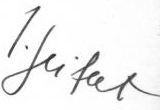 J. Seifert